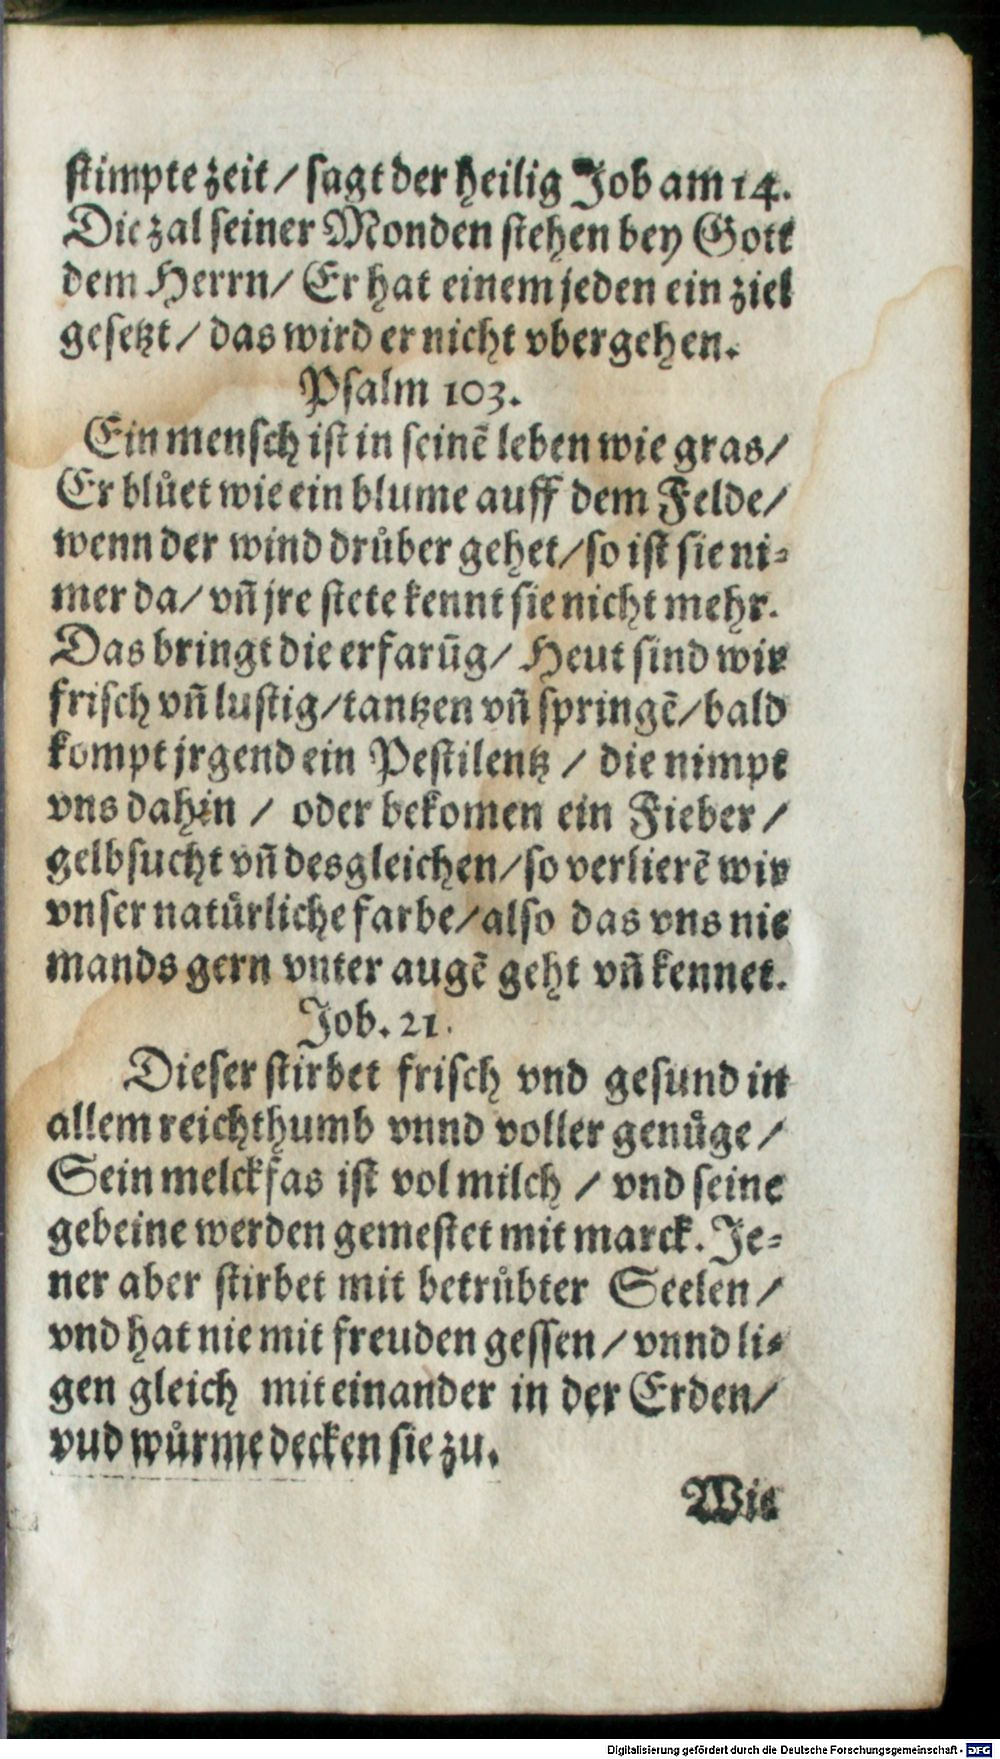 stimpte zeit / sagt der heilig Job am 14.
Die zal seiner Monden stehen bey Gott
dem Herrn / Er hat einem jeden ein ziel
gesetzt / das wird er nicht vbergehen.
Psalm 103.
Ein mensch ist in seinẽ leben wie gras /
Er blůet wie ein blume auff dem Felde /
wenn der wind drůber gehet / so ist sie ni-
mer da / vñ jre stete kennt sie nicht mehr.
Das bringt die erfarũg / Heut sind wir
frisch vñ lustig / tantzen vñ springẽ / bald
kompt jrgend ein Pestilentz / die nimpt
vns dahin / oder bekomen ein Fieber /
gelbsucht vñ desgleichen / so verlierẽ wir
vnser natůrliche farbe / also das vns nie
mands gern vnter augẽ geht vñ kennet.
Job. 21.
Dieser stirbet frisch vnd gesund in
allem reichthumb vnnd voller genůge /
Sein melckfas ist vol milch / vnd seine
gebeine werden gemestet mit marck. Je-
ner aber stirbet mit betrůbter Seelen /
vnd hat nie mit freuden gessen / vnnd li-
gen gleich mit einander in der Erden /
vud wůrme decken sie zu.
Wie
Digitalisierung gefördert durch die Deutsche Forschungsgemeinschaft - DFG